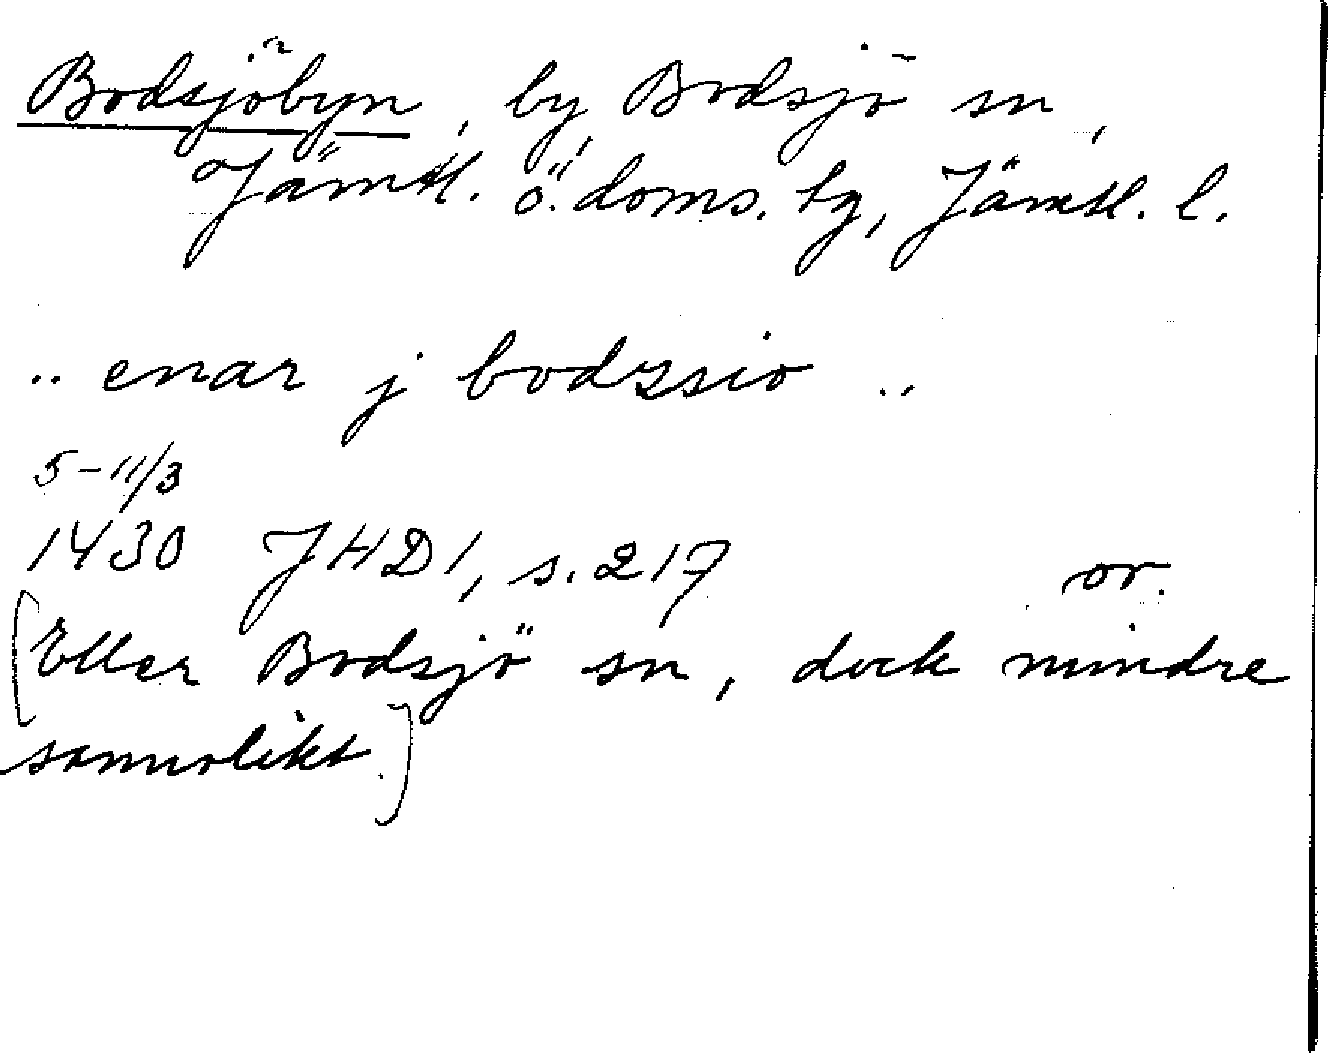 Bodsjöbyn, by, Bodsjö sn,
Jämtl. ö. doms. tg, Jämtl. l.
.. enar j bodzsio ..
5-11/3
1430 JHD1, s. 217 or.
[Eller Bodsjö sn, dock mindre
sannolikt.]